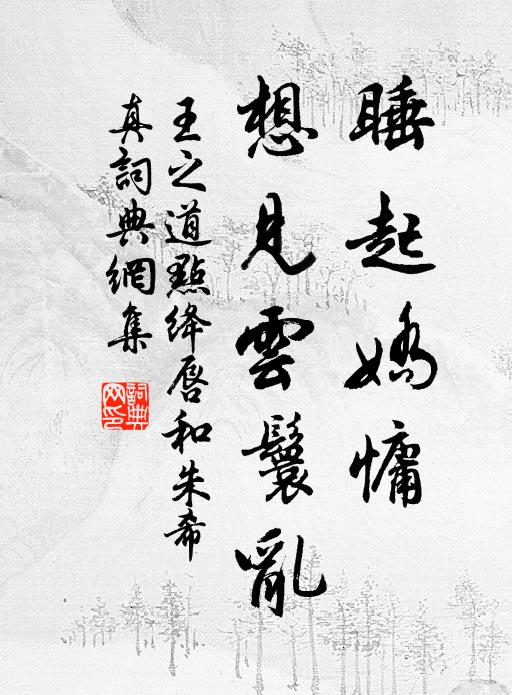 睡起嬌慵
想見雲鬟亂
王之道點絳唇和朱希
真詞典網集
詞典
网印